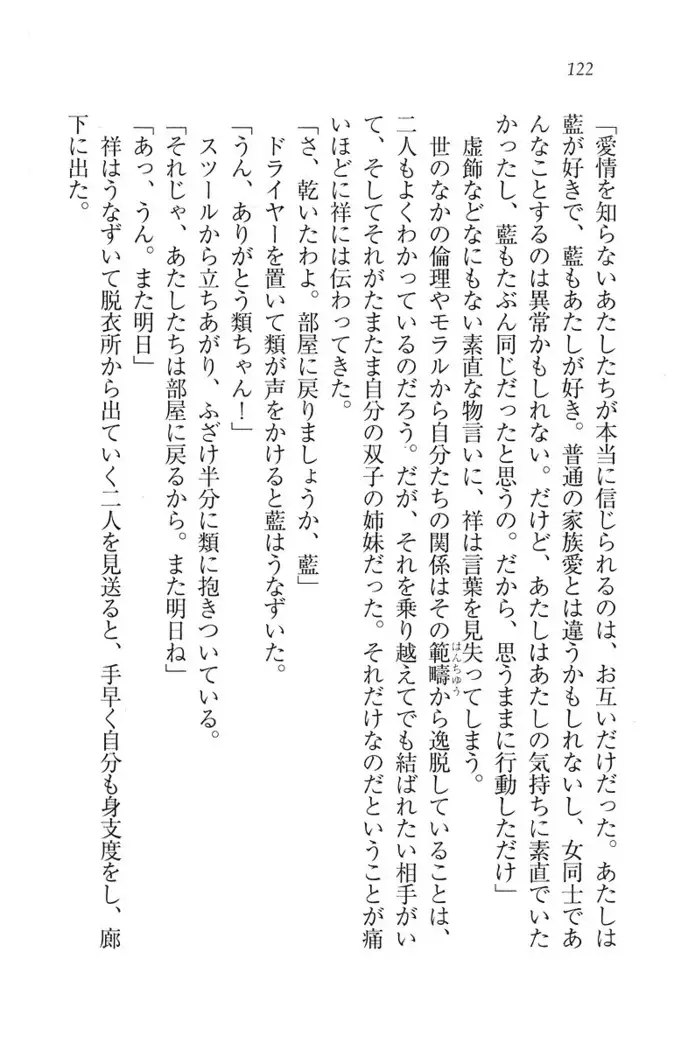 122
「愛情を知らないあたしたちが本当に信じられるのは、お互いだけだった。あたしは
藍が好きで、藍もあたしが好き。普通の家族愛とは違うかもしれないし、女同士であ
んなことするのは異常かもしれない。だけど、あたしはあたしの気持ちに素直でいた
かったし、藍もたぶん同じだったと思うの。だから、思うままに行動しただけ」
虚飾などなにもない素直な物言いに、祥は言葉を見失ってしまう。
世のなかの倫理やモラルから自分たちの関係はその範疇から逸脱していることは、
はんちゆう
二人もよくわかっているのだろう。だが、それを乗り越えてでも結ばれたい相手がい
て、そしてそれがたまたま自分の双子の姉妹だった。それだけなのだということが痛
いほどに祥には伝わってきた。
「さ、乾いたわよ。部屋に戻りましょうか、藍」
ドライヤーを置いて類が声をかけると藍はうなずいた。
「うん、ありがとう類ちゃん！」
スツールから立ちあがり、ふざけ半分に類に抱きついている。
「それじゃ、あたしたちは部屋に戻るから。また明日ね」
「あっ、うん。また明日」
祥はうなずいて脱衣所から出ていく二人を見送ると、手早く自分も身支度をし、廊
下に出た。